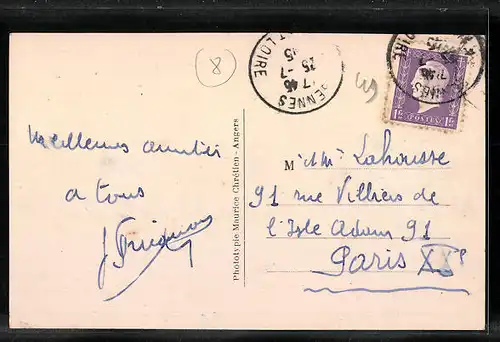 8
Meilleures amitiés
à tous
Phototypie Maurice Chrétien - Angers
M et Mme Lahousse
91 rue Villiers de
l'Isle Adam 91
Paris XXe
1F POSTES 1F
17 45
25 -7
LOIRE